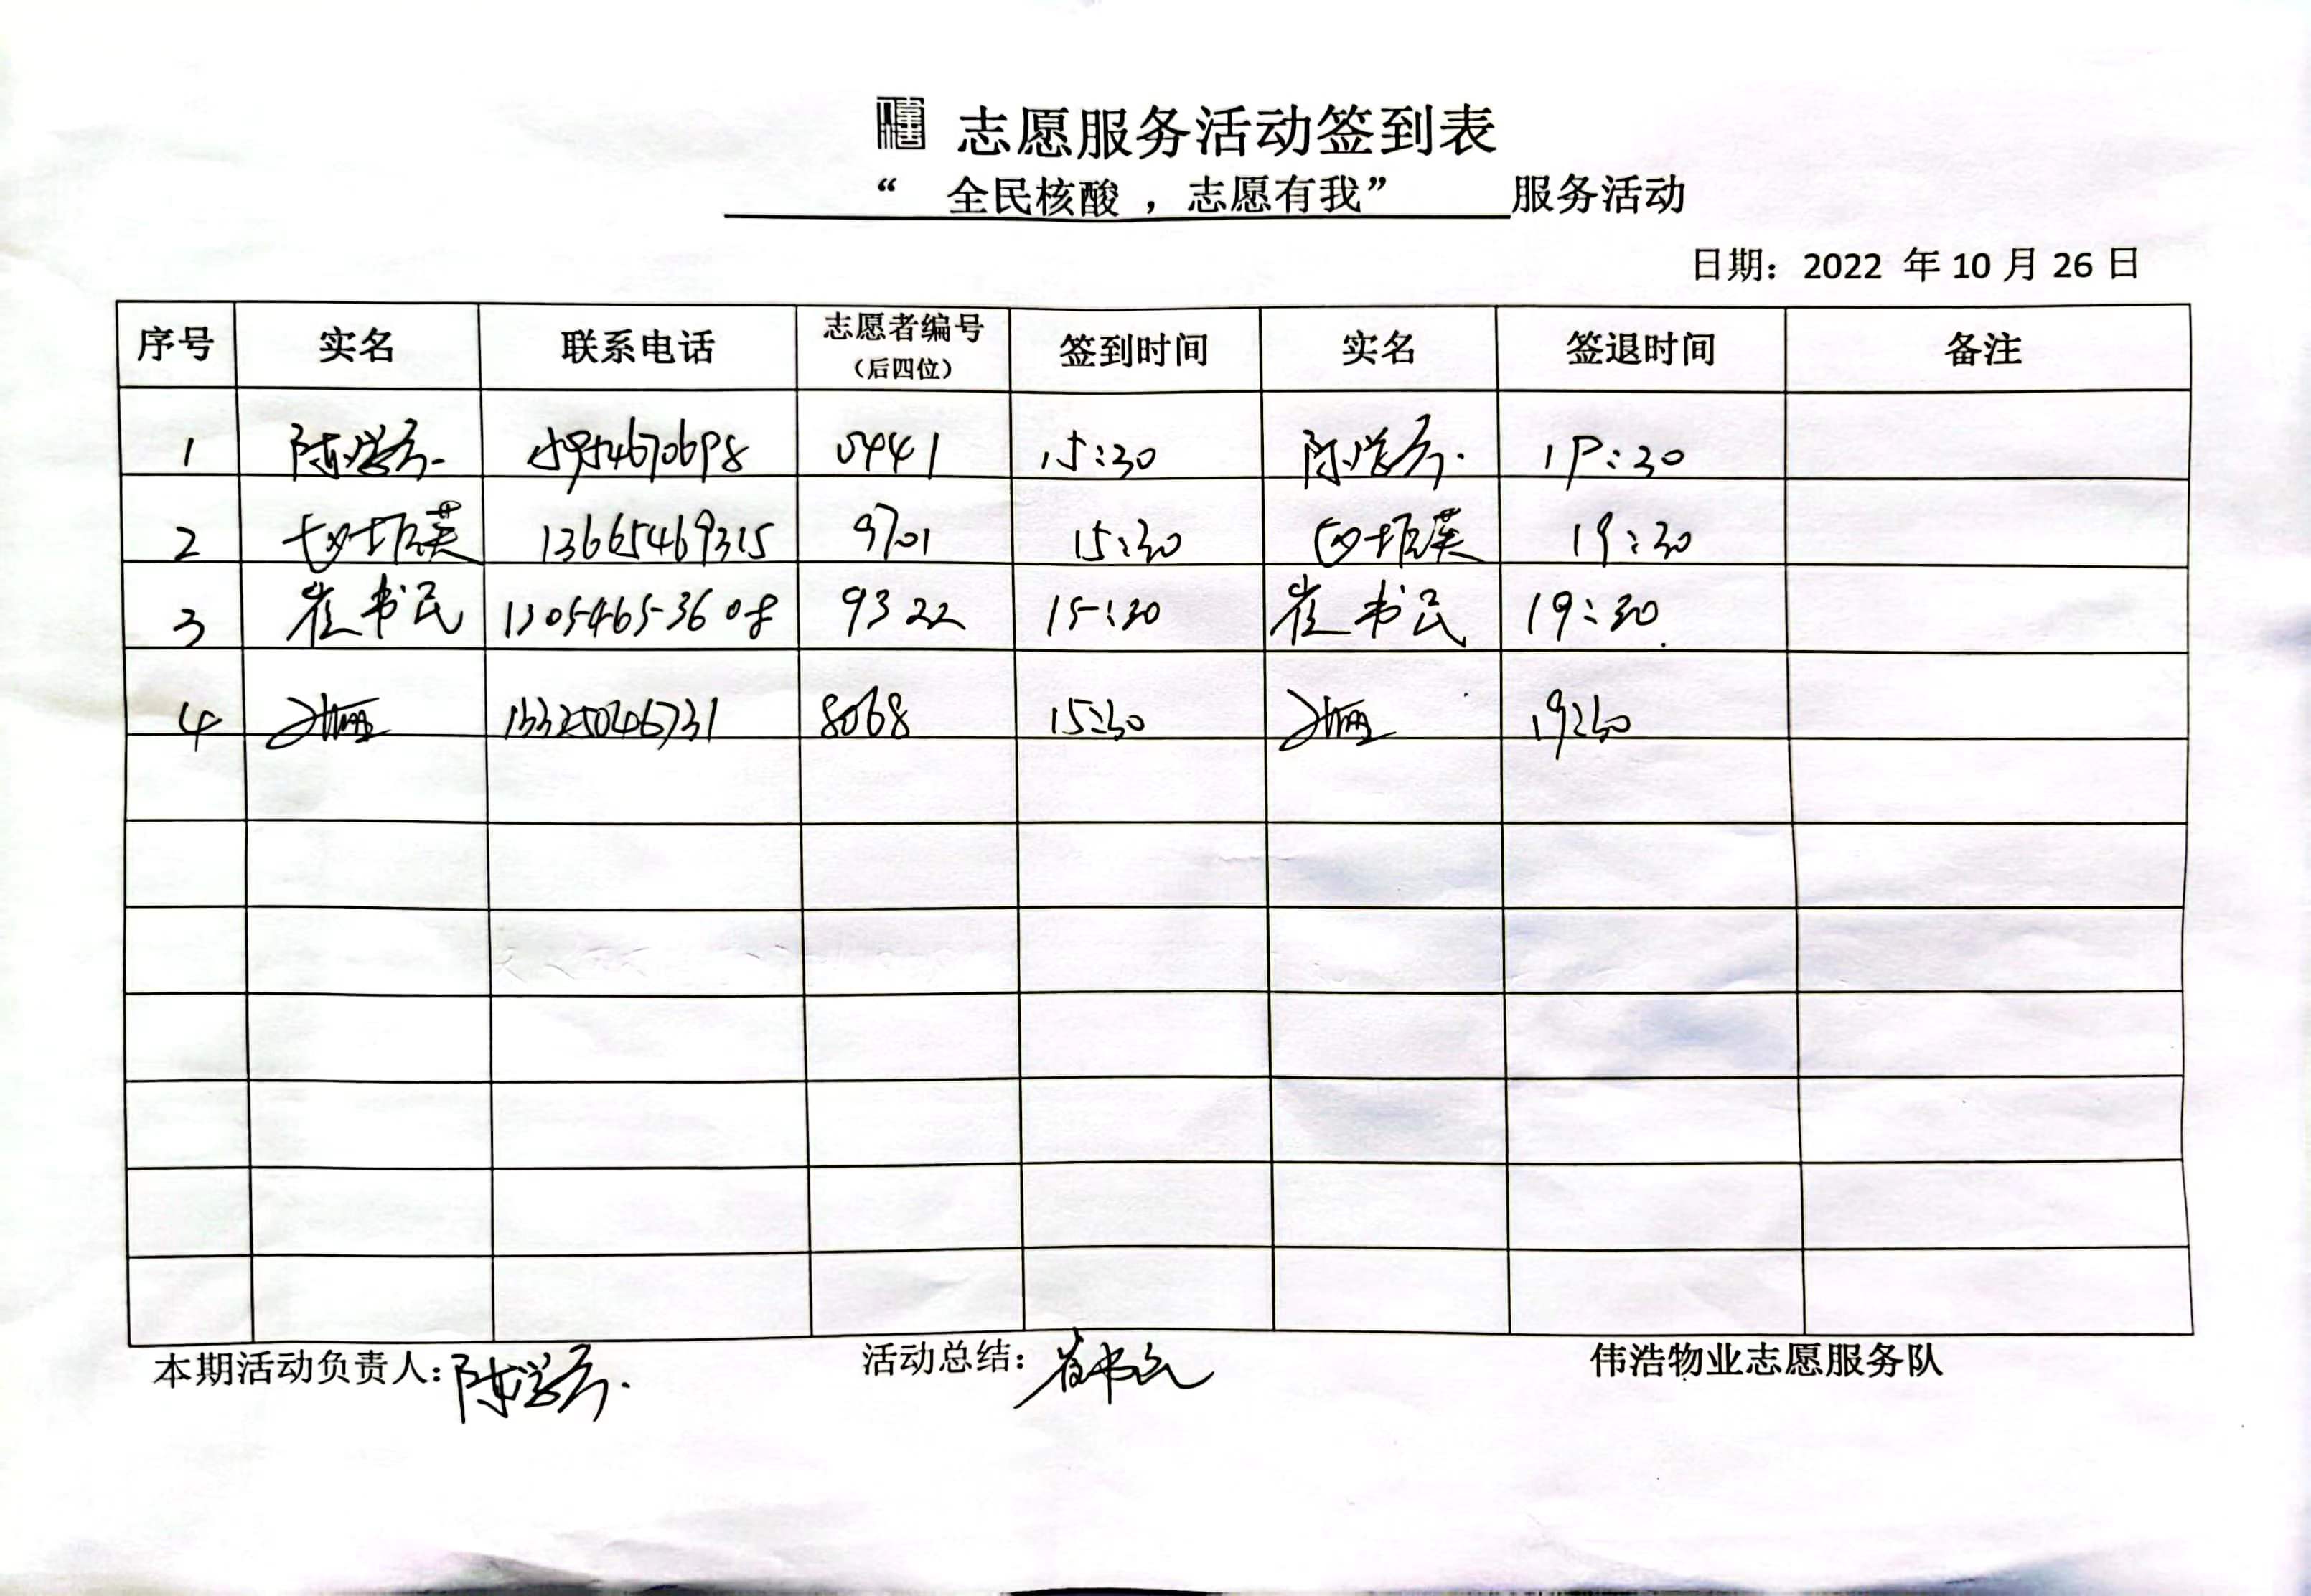 志愿服务活动签到表
“ 全民核酸 ，志愿有我” 服务活动
日期：2022 年 10 月 26 日
序号 实名 联系电话 志愿者编号（后四位） 签到时间 实名 签退时间 备注
1 陈学兵 0441 15:30 陈学兵 19:30
2 13665469315 9701 15:30 19:30
3 崔书民 13054653608 9322 15:30 崔书民 19:30
4 13325046731 8068 15:30 19:30
本期活动负责人：陈学兵 活动总结：崔书民 伟浩物业志愿服务队